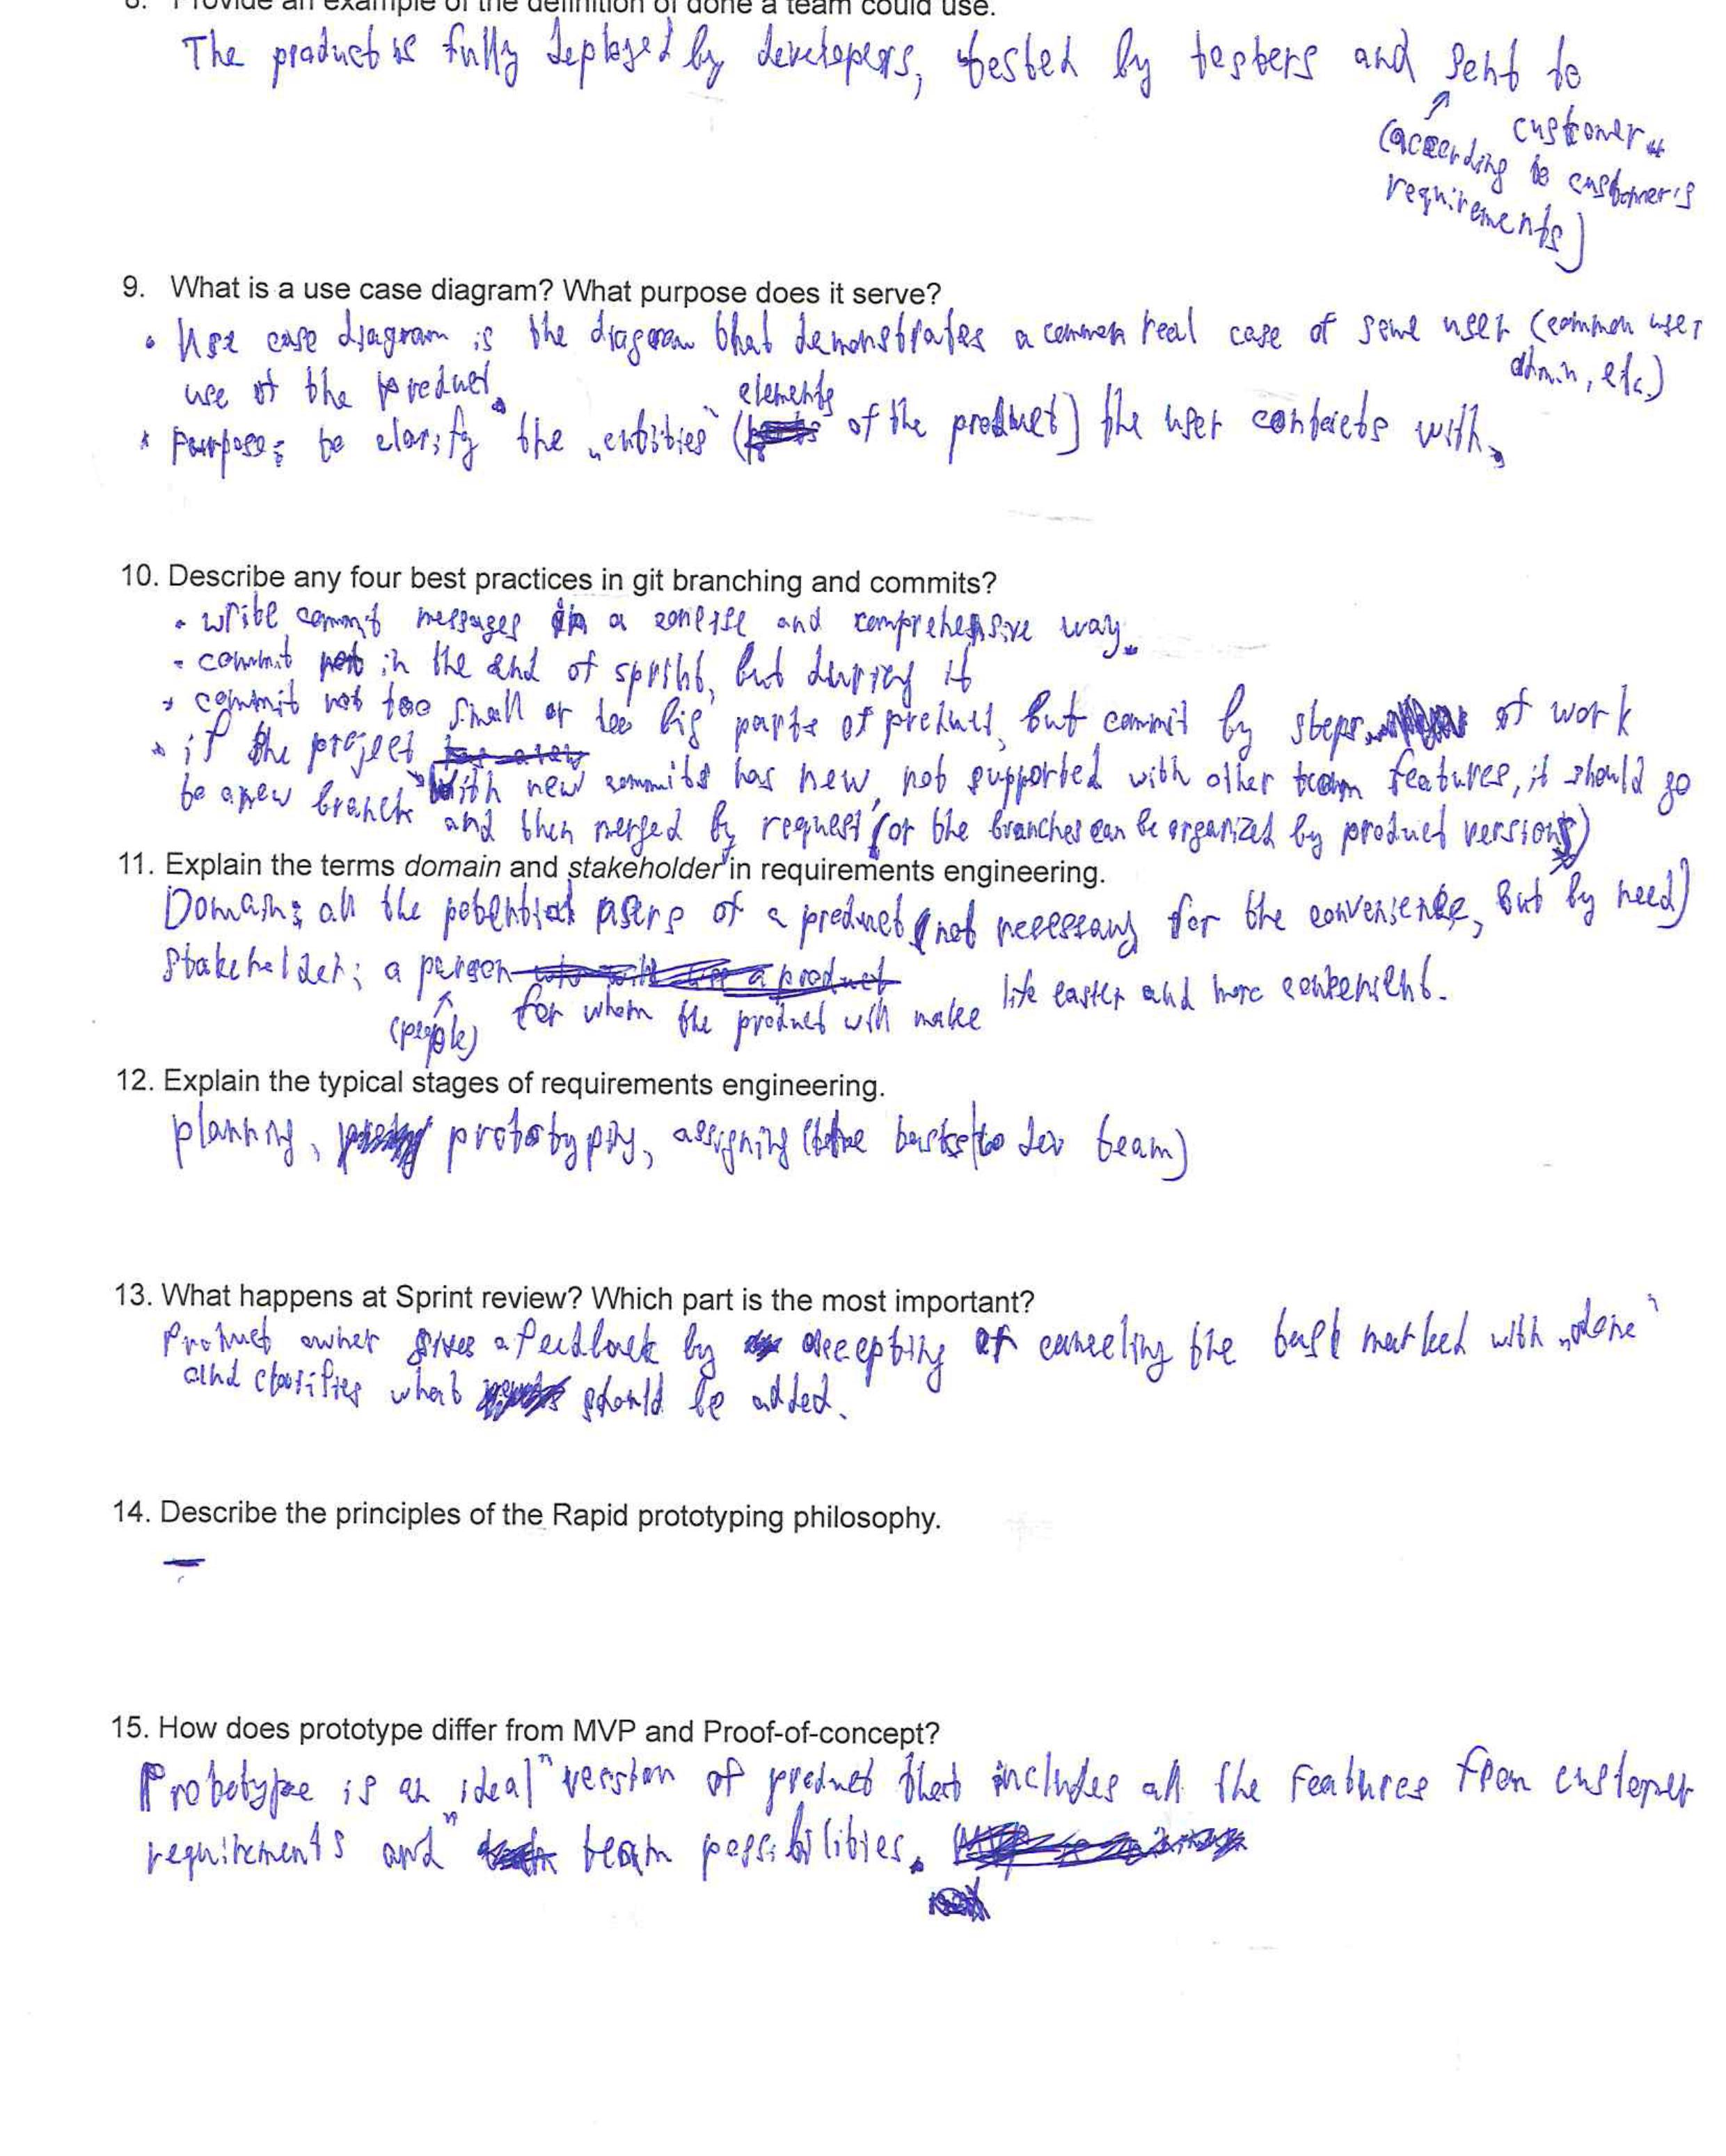 8. Provide an example of the definition of done a team could use.
The product is fully deployed by developers, tested by testers and sent to
customer.
(according to customer's
requirements)
9. What is a use case diagram? What purpose does it serve?
• Use case diagram is the diagram that demonstrates a common real case of some user (common user
admin, etc.)
use of the product.
elements
• Purpose: to clarify the „entities“ ( of the product) the user contacts with.
10. Describe any four best practices in git branching and commits?
• write commit messages in a concise and comprehensive way.
- commit not in the end of sprint, but during it
• commit not too small or too big parts of product, but commit by steps of work
• if the project
with new commits has new, not supported with other team features, it should go
to a new branch and then merged by request (or the branches can be organized by product versions)
11. Explain the terms domain and stakeholder in requirements engineering.
Domain: all the potential users of a product (not necessary for the convenience, but by need)
Stakeholder: a person
(people) for whom the product will make life easier and more convenient.
12. Explain the typical stages of requirements engineering.
planning, prototyping, assigning (the tasks to dev team)
13. What happens at Sprint review? Which part is the most important?
Product owner gives a feedback by accepting or canceling the task marked with „done“
and clarifies what should be added.
14. Describe the principles of the Rapid prototyping philosophy.
—
15. How does prototype differ from MVP and Proof-of-concept?
Prototype is an "ideal" version of product that includes all the features from customer
requirements and team possibilities.